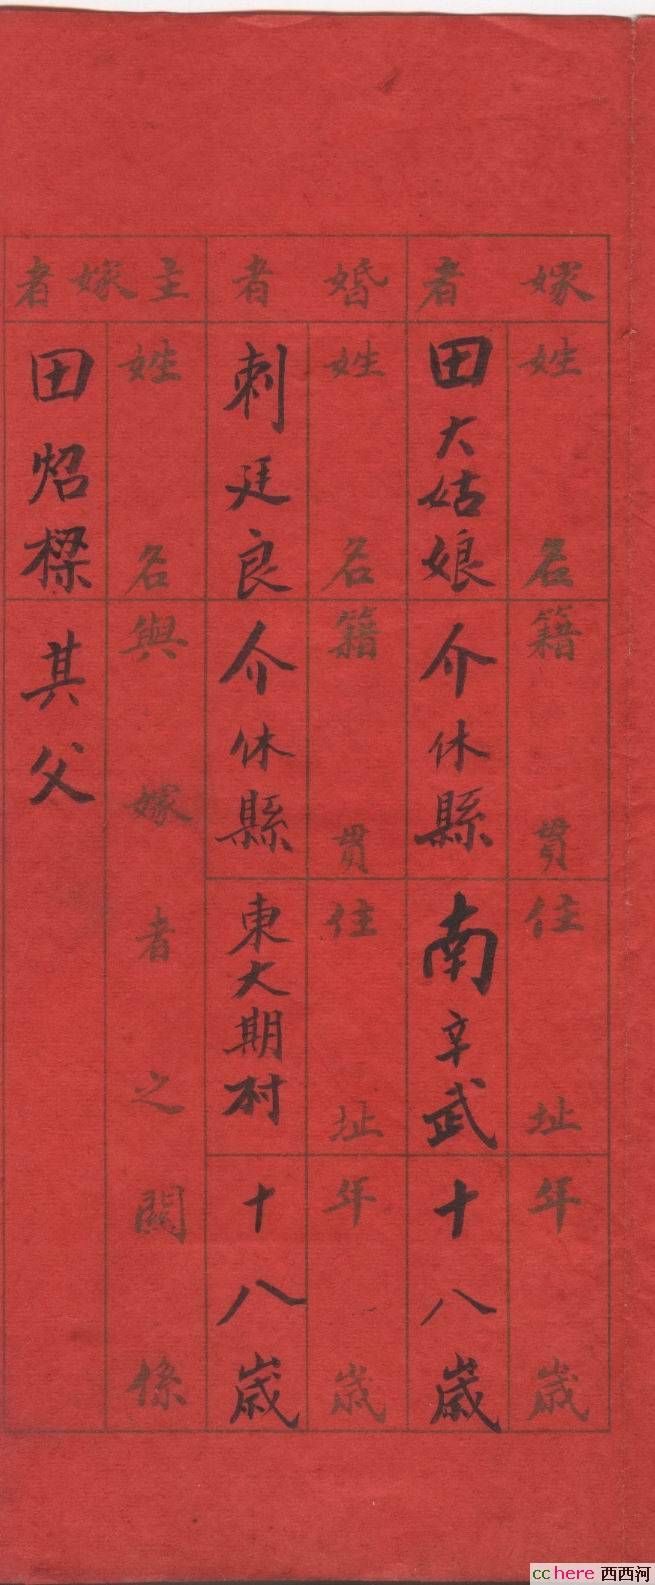 嫁者
姓名籍貫住址年歲
田大姑娘介休縣南辛武十八歲
婚者
姓名籍貫住址年歲
刺廷良介休縣東大期村十八歲
主嫁者
姓名與嫁者之關係
田炤樑其父
cchere 西西河